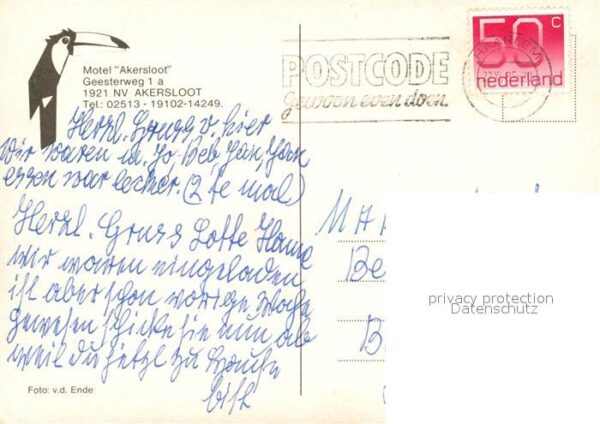 Motel "Akersloot"
Geesterweg 1 a
1921 NV AKERSLOOT
Tel.: 02513 - 19102-14249.
POSTCODE
gewoon even doen.
HAARLEM
50 c
nederland
Herzl. Gruss v. hier
wir waren m. Jo, Beb, Jan,
essen war lecker. (2te mal)
Herzl. Gruss Lotte
wir waren eingeladen
ist aber schon vorige Woche
gewesen schicke sie nun ab
weil du jetzt zu Hause
bist
MA
Be
B
privacy protection
Datenschutz
Foto: v.d. Ende